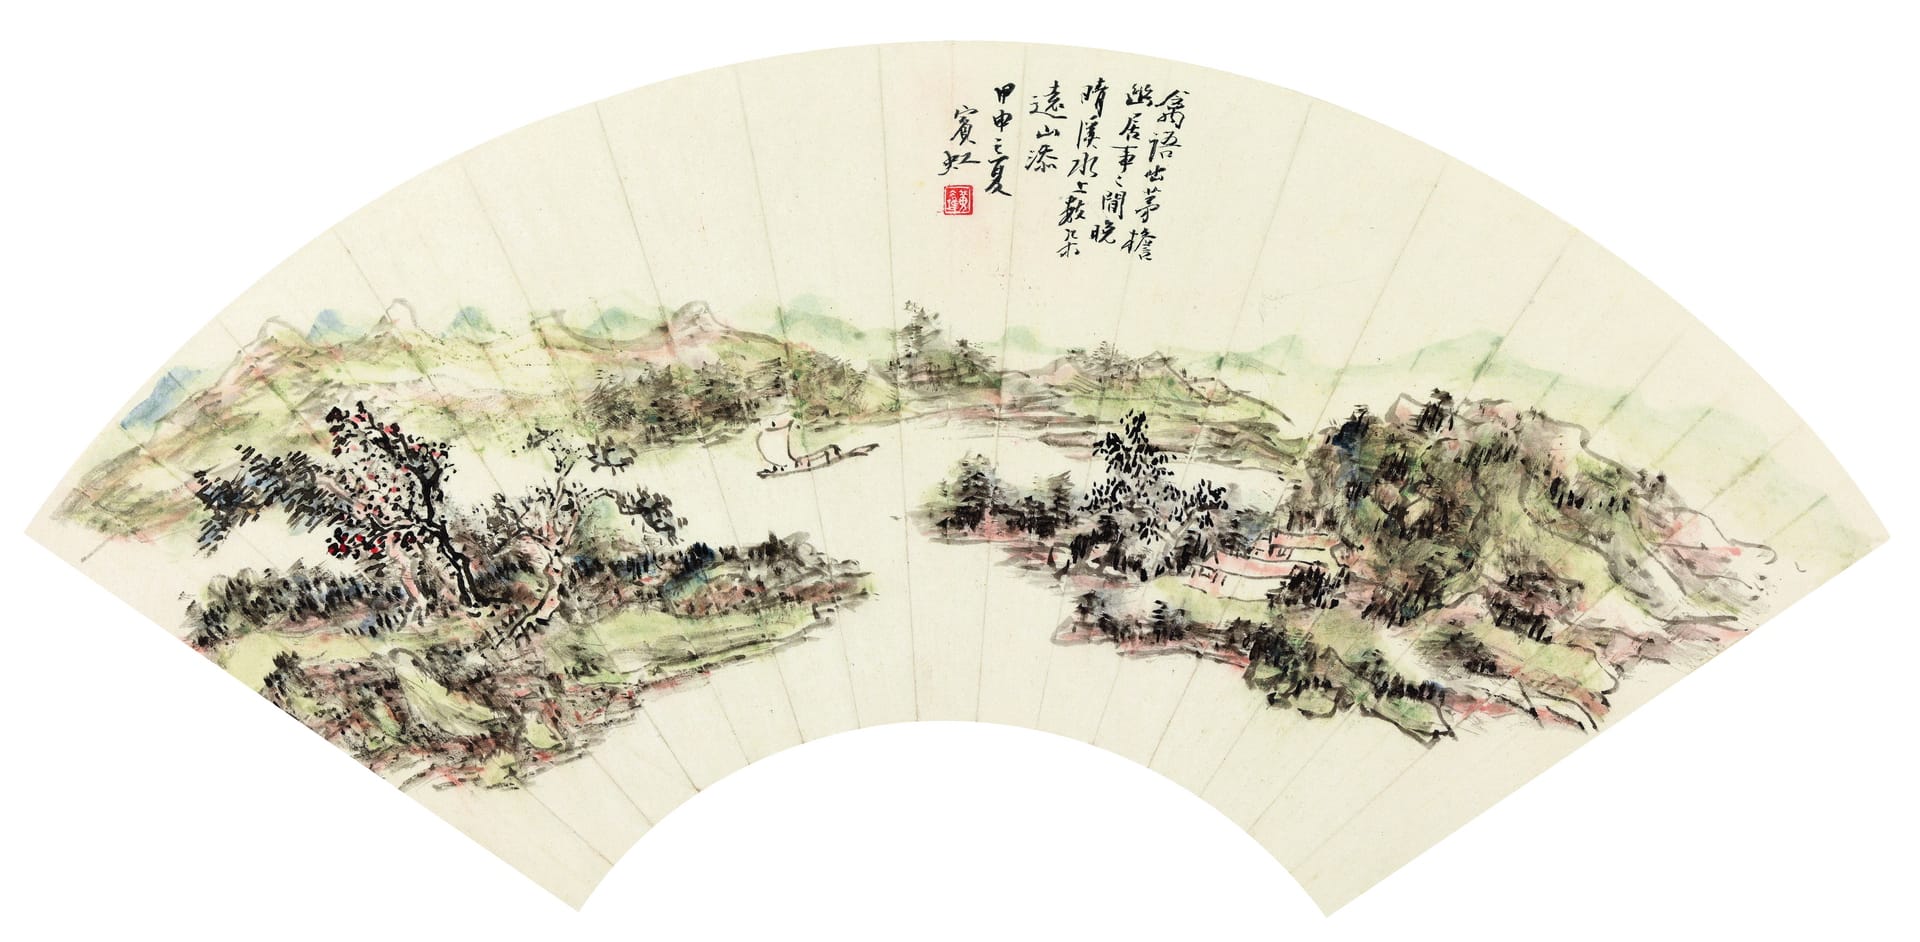 禽語出茅檐
幽居事〻閒晚
晴溪水上數朵
遠山添
甲申之夏
賓虹